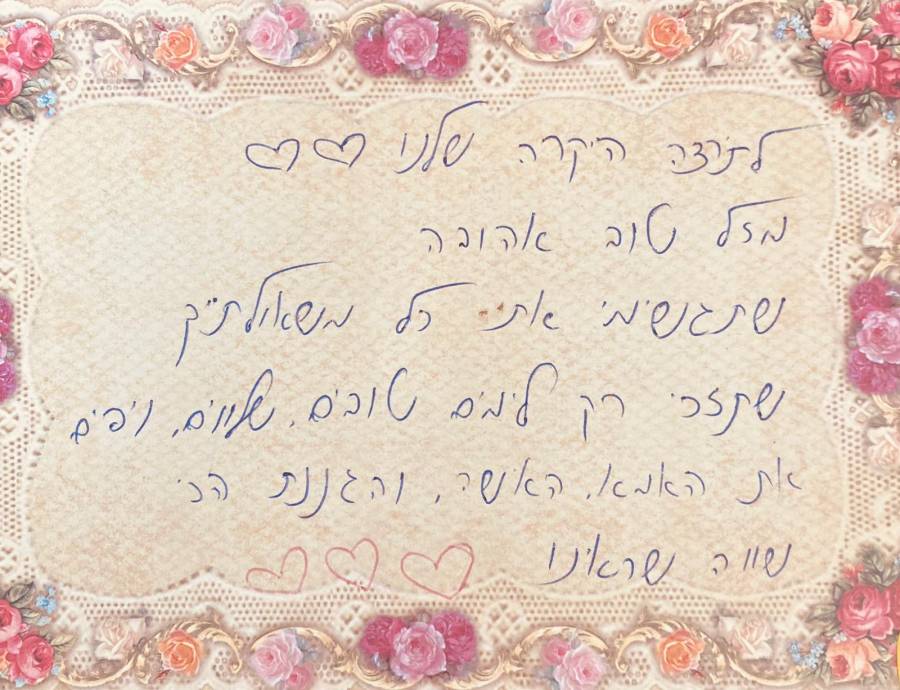 לתרצה היקרה שלנו ♡♡
מזל טוב אהובה
שתגשימי את כל משאלתייך
שתזכי רק לימים טובים, שלווים, ויפים
את האמא, האישה, והגננת הכי
שווה שראינו ♡♡♡